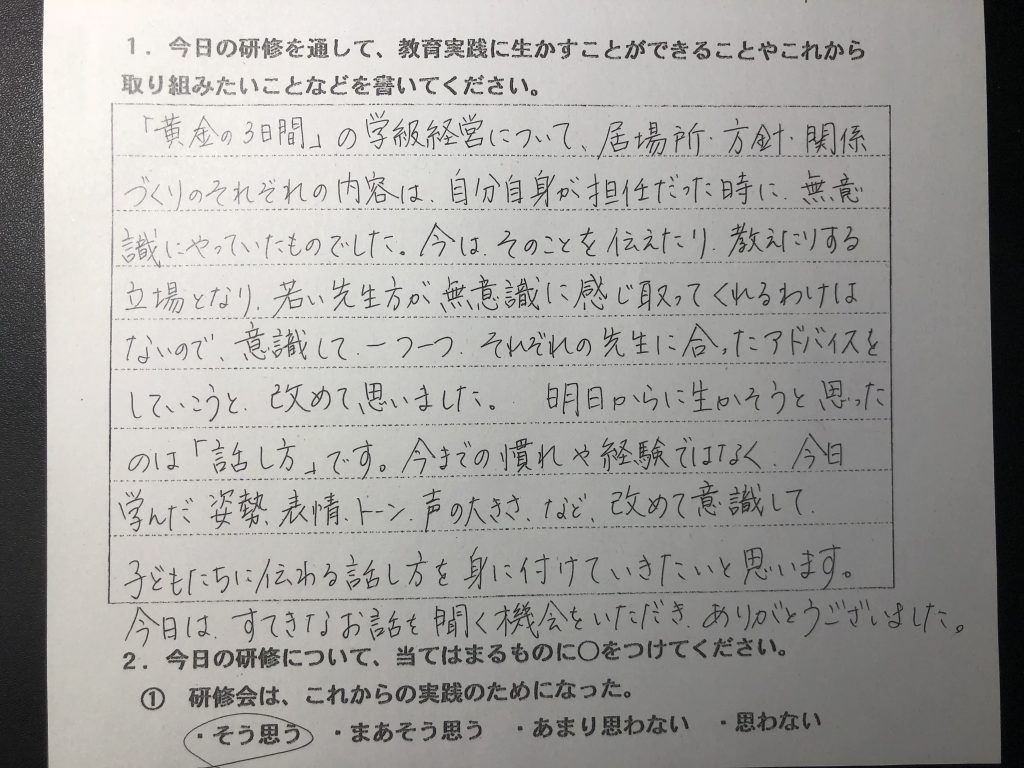 1．今日の研修を通して、教育実践に生かすことができることやこれから
取り組みたいことなどを書いてください。
「黄金の3日間」の学級経営について、居場所・方針・関係
づくりのそれぞれの内容は、自分自身が担任だった時に、無意
識にやっていたものでした。今は、そのことを伝えたり、教えたりする
立場となり、若い先生方が無意識に感じ取ってくれるわけは
ないので、意識して、一つ一つ、それぞれの先生に合ったアドバイスを
していこうと、改めて思いました。　明日からに生かそうと思った
のは「話し方」です。今までの慣れや経験ではなく、今日
学んだ姿勢、表情、トーン、声の大きさ、など、改めて意識して、
子どもたちに伝わる話し方を身に付けていきたいと思います。
今日は、すてきなお話を聞く機会をいただき、ありがとうございました。
2．今日の研修について、当てはまるものに○をつけてください。
①　研修会は、これからの実践のためになった。
・そう思う　・まあそう思う　・あまり思わない　・思わない